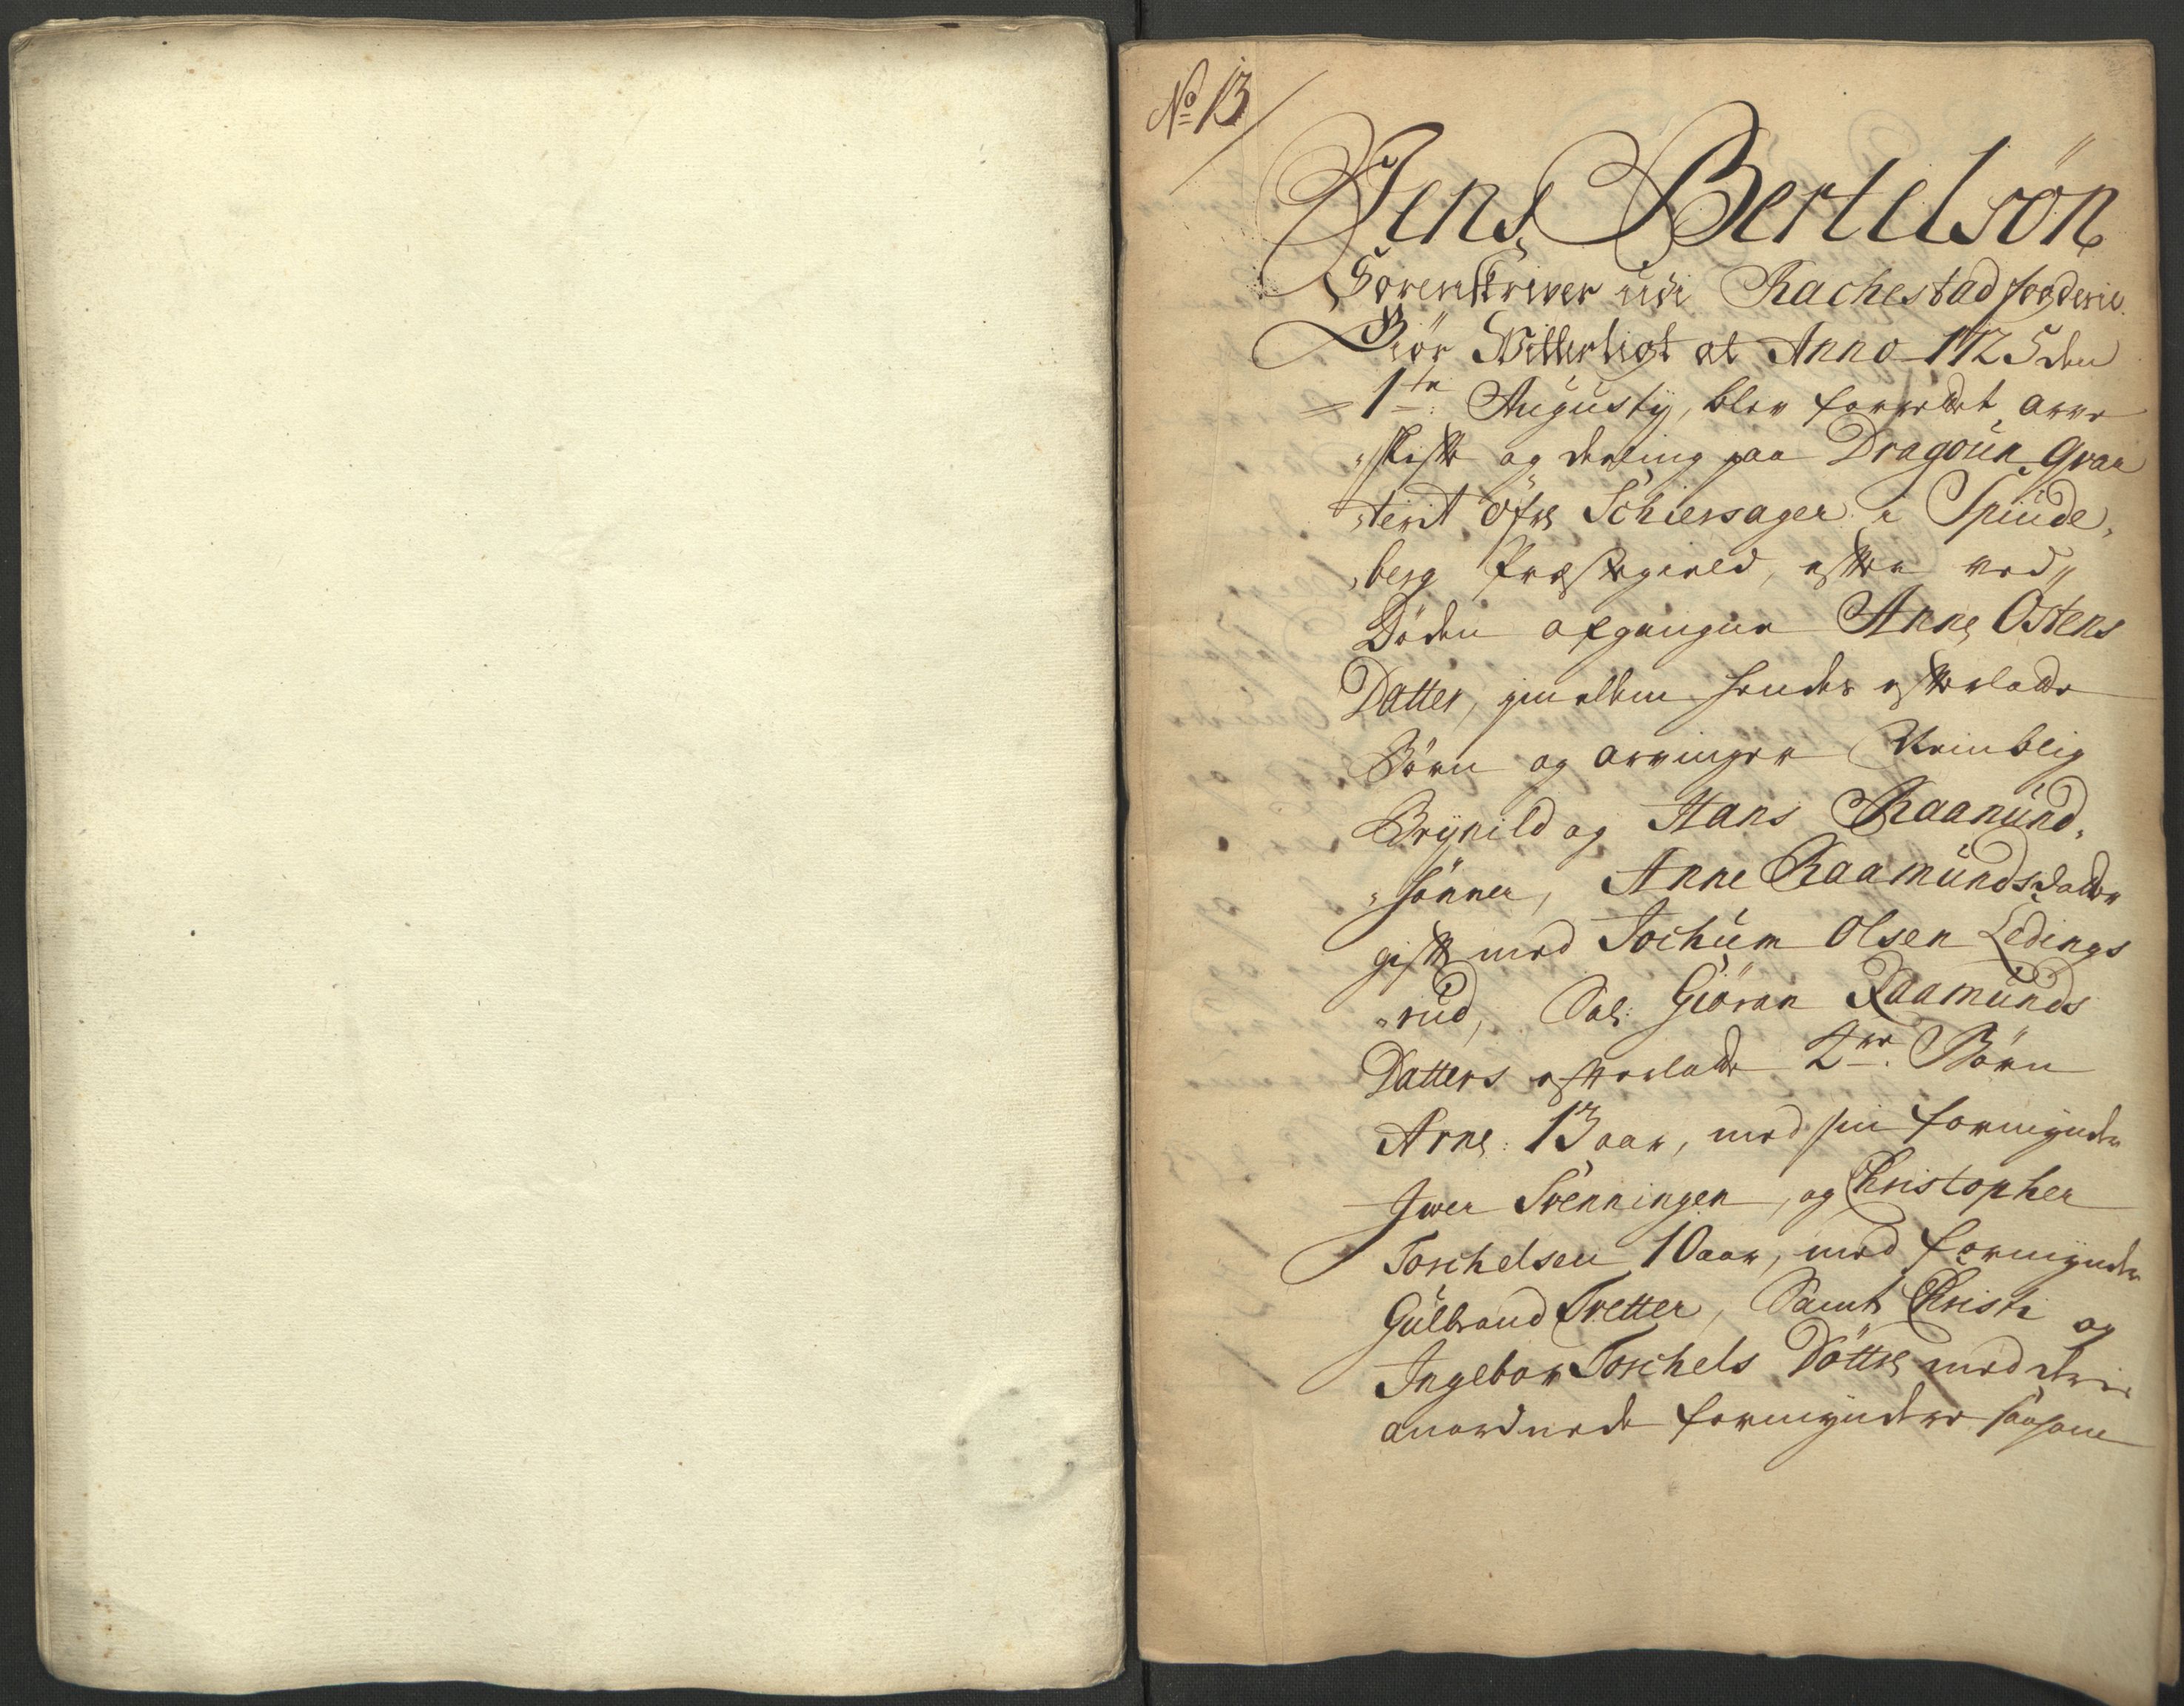 No 13
Jens Bertelsøn
Sorenskriver udi Rachestad fogderie
Giør Witterligt at Anno 1725 den
1te Augusty, blev forrettet arve
skifte og deeling paa Dragoun Qvar
terit Öfre Schiersager i Spüde
berg Præstegield, efter ved
Döden afgangne Anne Ostens
Datter, imellem hendes efterladte
Börn og arvinger Nemblig
Brynild og Hans Raamünd
sönner, Anne Raamündsdatter
gift med Jochüm Olsen Ledings
rüd, Sal: Giöran Raamünds
Datters efterladte 4re Börn
Arne 13 aar, med sin formynder
Iwer Svenningen, og Christopher
Torchelsen 10 aar, med formynder
Gülbrand Tvetter, Samt Christi og
Ingebor Torchels Döttre med deris
anordnede formyndere saasom